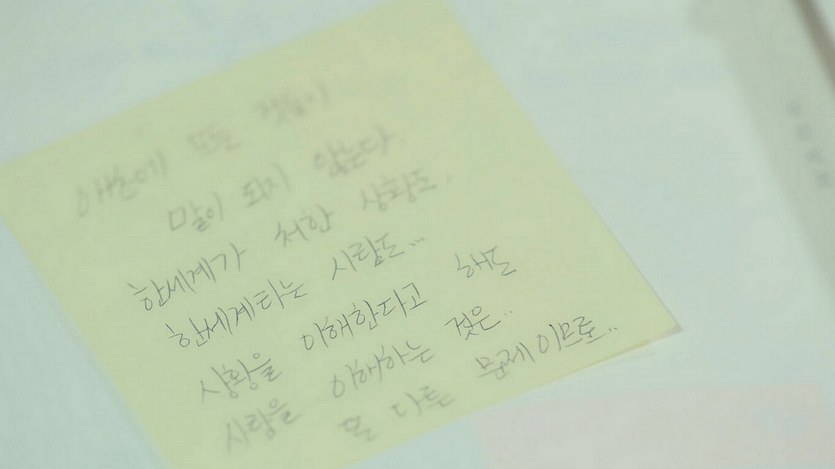 애초에 모든 것들이
말이 되지 않는다.
한세계가 처한 상황도.
한세계라는 사람도...
상황을 이해한다고 해도
사람을 이해하는 것은..
또 다른 문제이므로..